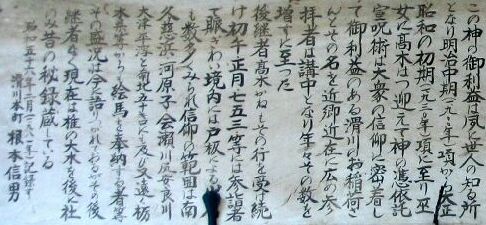 この神の御利益は夙に世人の知る所
となり明治中期(一九〇〇年)頃から大正
昭和の初期(一九三〇年)頃に至り巫
女に高木はつ迎えて神の憑依託
宣呪術は大衆の信仰に密着し
て御利益のある滑川のお稲荷さ
んとその名を近郷近在に広め参
拝者は講中となり年々その数を
増すに至った
後継者高木かねもその行を受け継
け初午正月七五三等には参詣者
で賑わい境内には戸板による
も数多くみられ信仰の範囲は南
久慈浜河原子会瀬川尻女良川
大津平潟と南北五十キロに及び又遠く栃
木県等からも絵馬を奉納する者等
その盛況は今に語りつがれているがその後
継者なく現在は椎の大木を後に社
のみ昔の秘録を蔵している
昭和五十六年二月(一九八一)記録す
滑川本町 根本信男